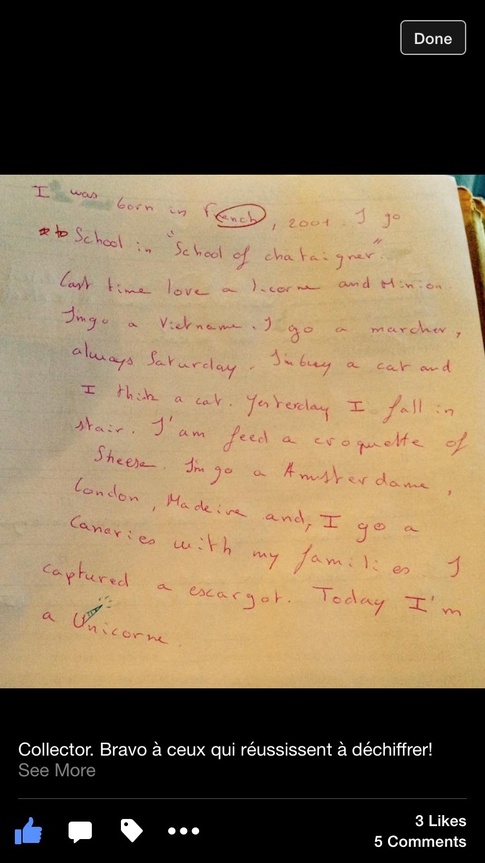 Done
I was born in French, 2001. I go
to School in "School of chataigner"
Last time love a licorne and Minion
I'mgo a Vietname. I go a marcher,
always Saturday. I'mbuy a cat and
I think a cat. Yesterday I fall in
stair. I'am feed a croquette of
Sheese. I'm go a Amsterdame,
London, Madeire and, I go a
Canaries with my families. I
captured a escargot. Today I'm
a Unicorne.
Collector. Bravo à ceux qui réussissent à déchiffrer!
See More
3 Likes
5 Comments